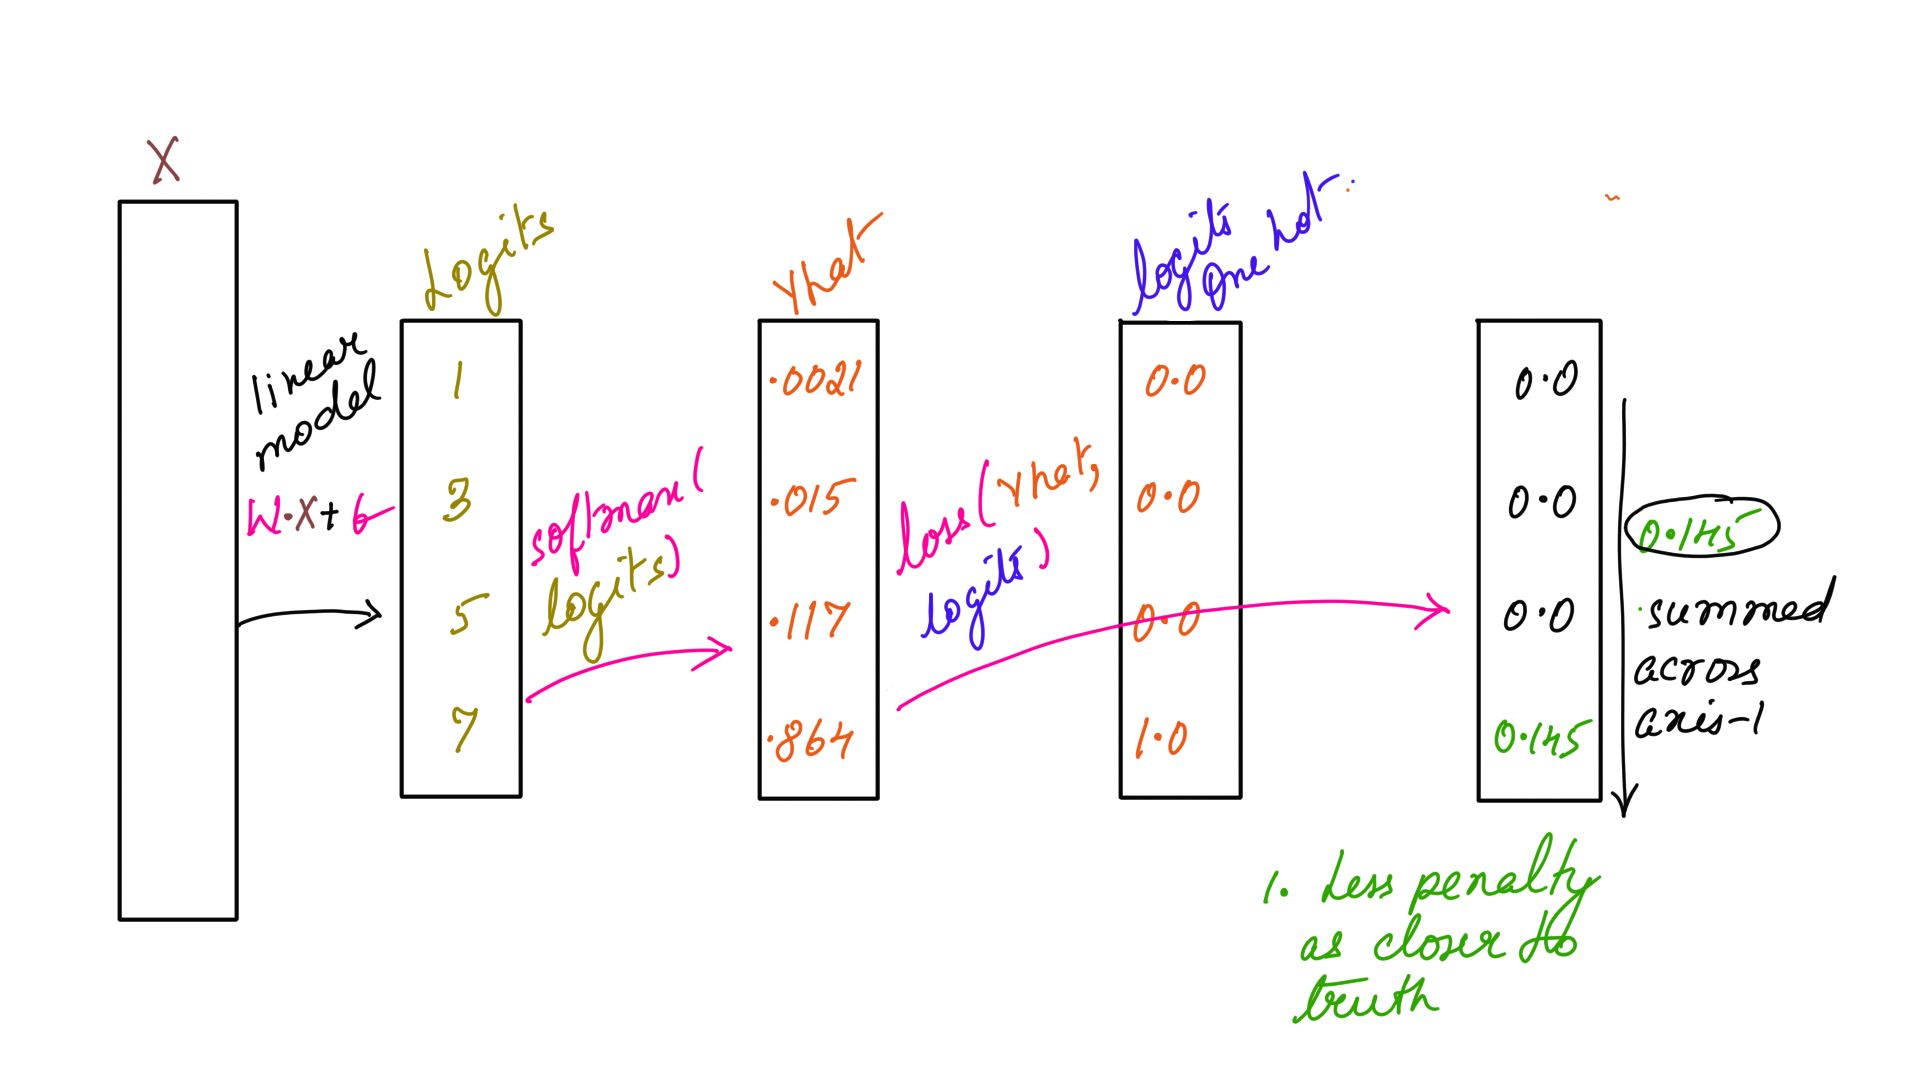 X
linear
model
W.X+b
Logits
1
3
5
7
softmax(
logits)
yhat
.0021
.015
.117
.864
loss(yhat,
logits)
logits
one hot
0.0
0.0
0.0
1.0
0.0
0.0
0.0
0.145
0.145
summed
across
axis-1
1. Less penalty
as closer to
truth